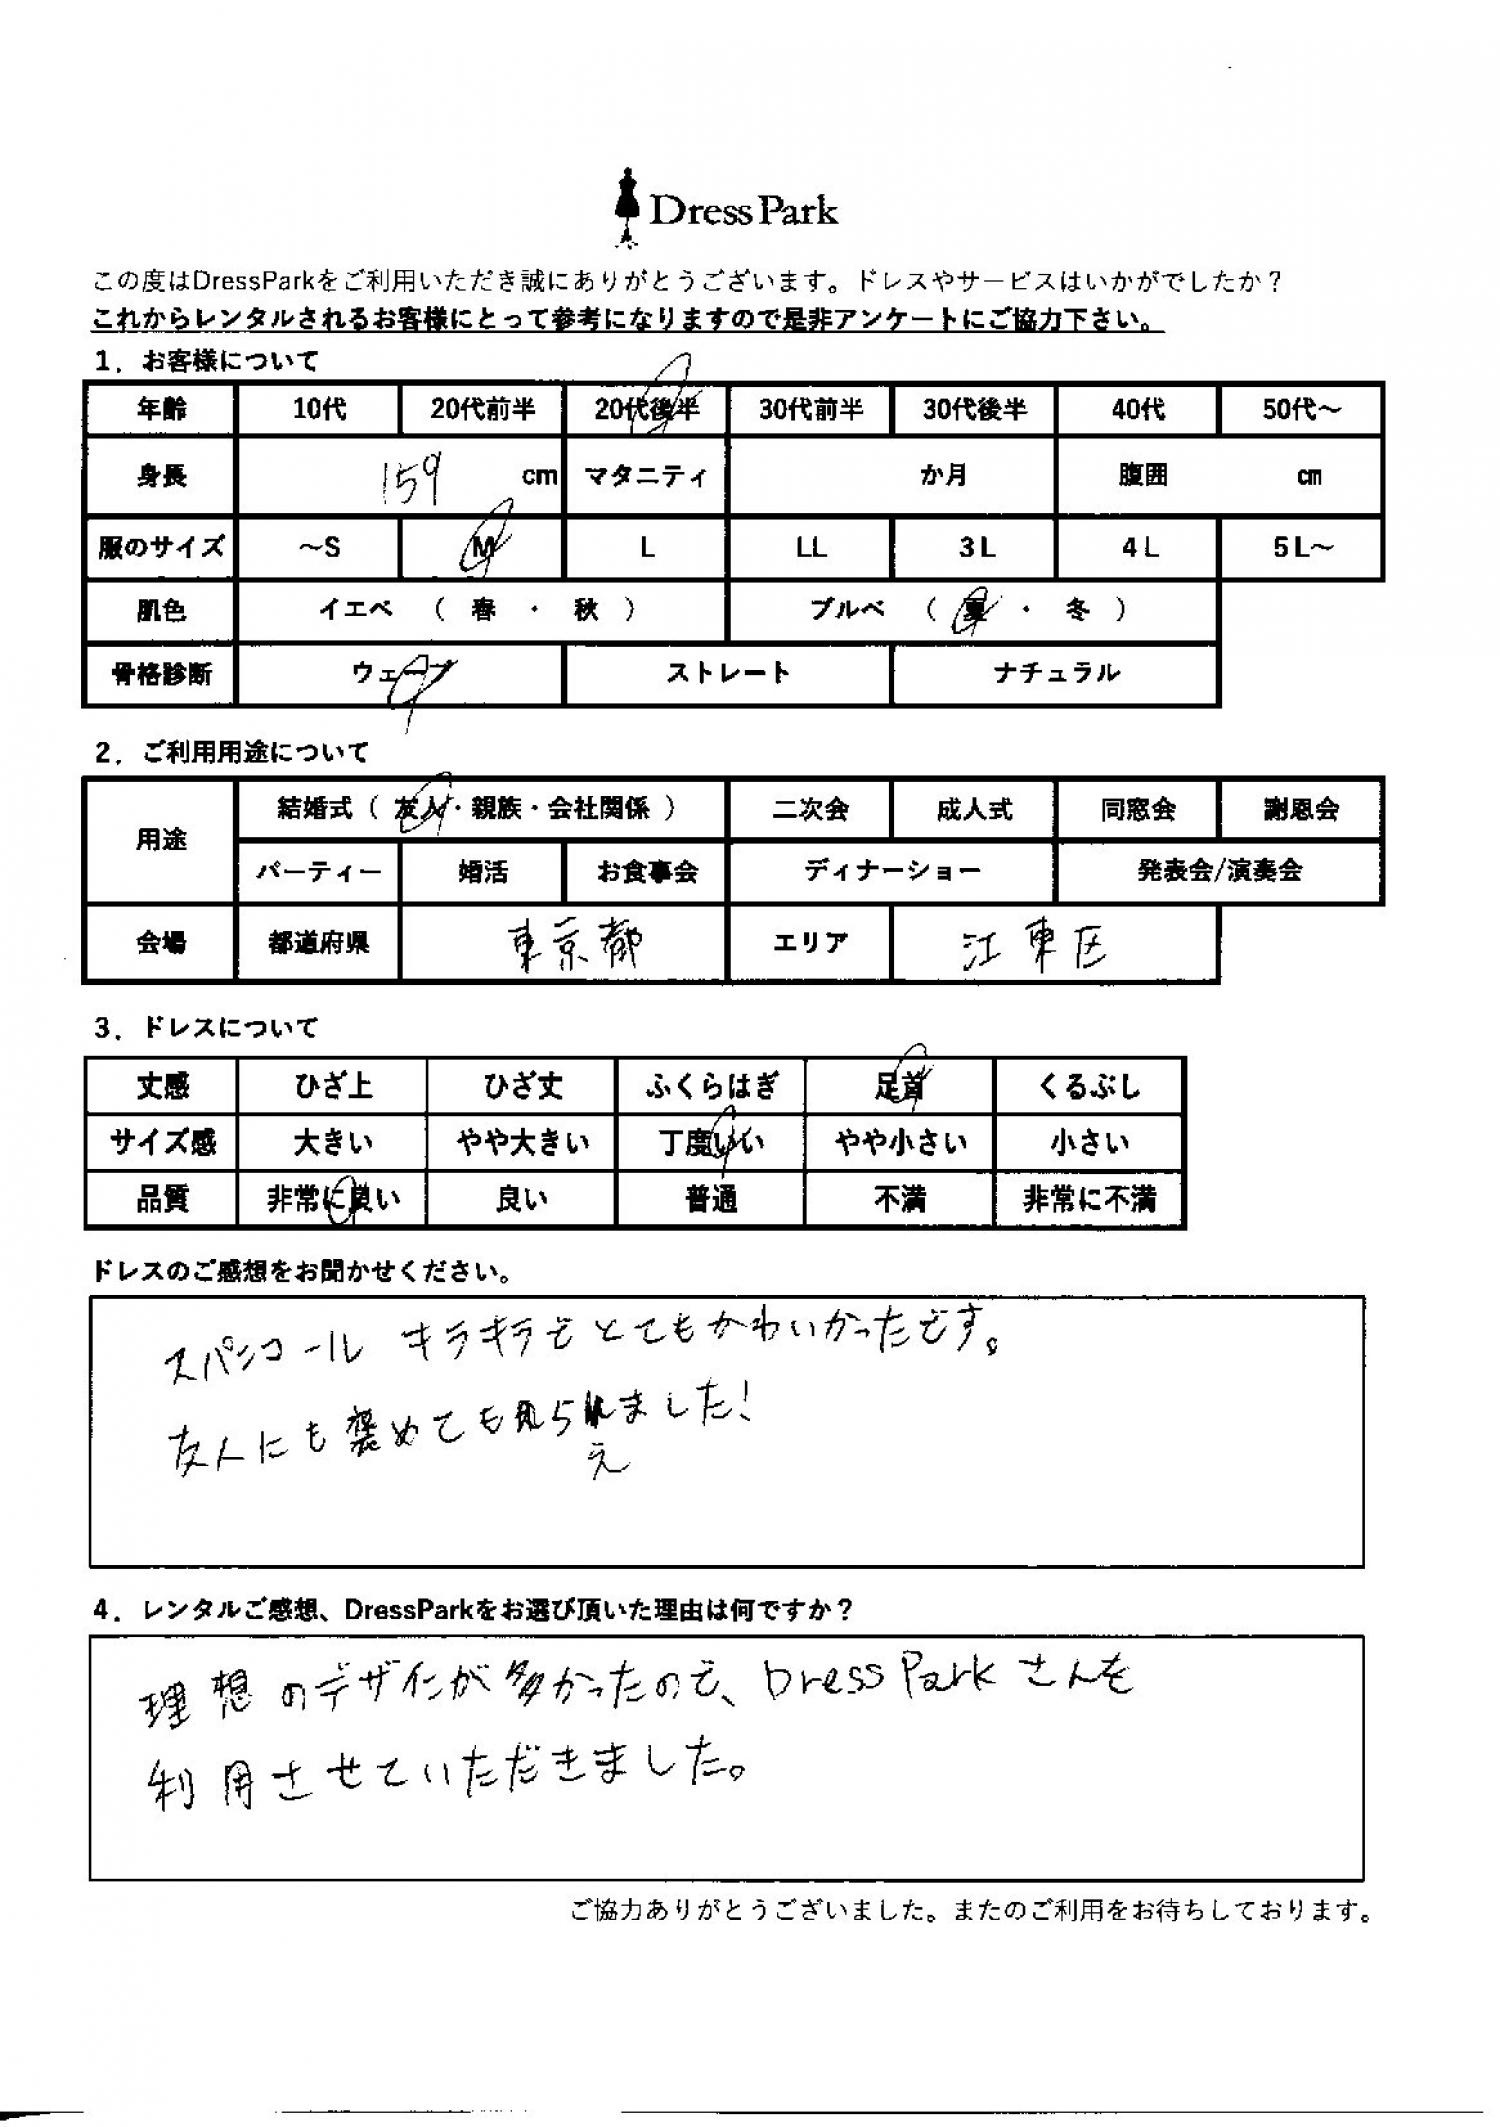 Dress Park
この度はDressParkをご利用いただき誠にありがとうございます。ドレスやサービスはいかがでしたか？
これからレンタルされるお客様にとって参考になりますので是非アンケートにご協力下さい。
1．お客様について
年齢 10代 20代前半 20代後半 30代前半 30代後半 40代 50代～
身長 159 cm マタニティ か月 腹囲 cm
服のサイズ ～S M L LL 3L 4L 5L～
肌色 イエベ （ 春 ・ 秋 ） ブルベ （ 夏 ・ 冬 ）
骨格診断 ウェーブ ストレート ナチュラル
2．ご利用用途について
用途 結婚式（ 友人・親族・会社関係 ） 二次会 成人式 同窓会 謝恩会
パーティー 婚活 お食事会 ディナーショー 発表会/演奏会
会場 都道府県 東京都 エリア 江東区
3．ドレスについて
丈感 ひざ上 ひざ丈 ふくらはぎ 足首 くるぶし
サイズ感 大きい やや大きい 丁度いい やや小さい 小さい
品質 非常に良い 良い 普通 不満 非常に不満
ドレスのご感想をお聞かせください。
スパンコール キラキラでとてもかわいかったです。
友人にも褒めてもらえました！
4．レンタルご感想、DressParkをお選び頂いた理由は何ですか？
理想のデザインが多かったので、Dress Parkさんを
利用させていただきました。
ご協力ありがとうございました。またのご利用をお待ちしております。